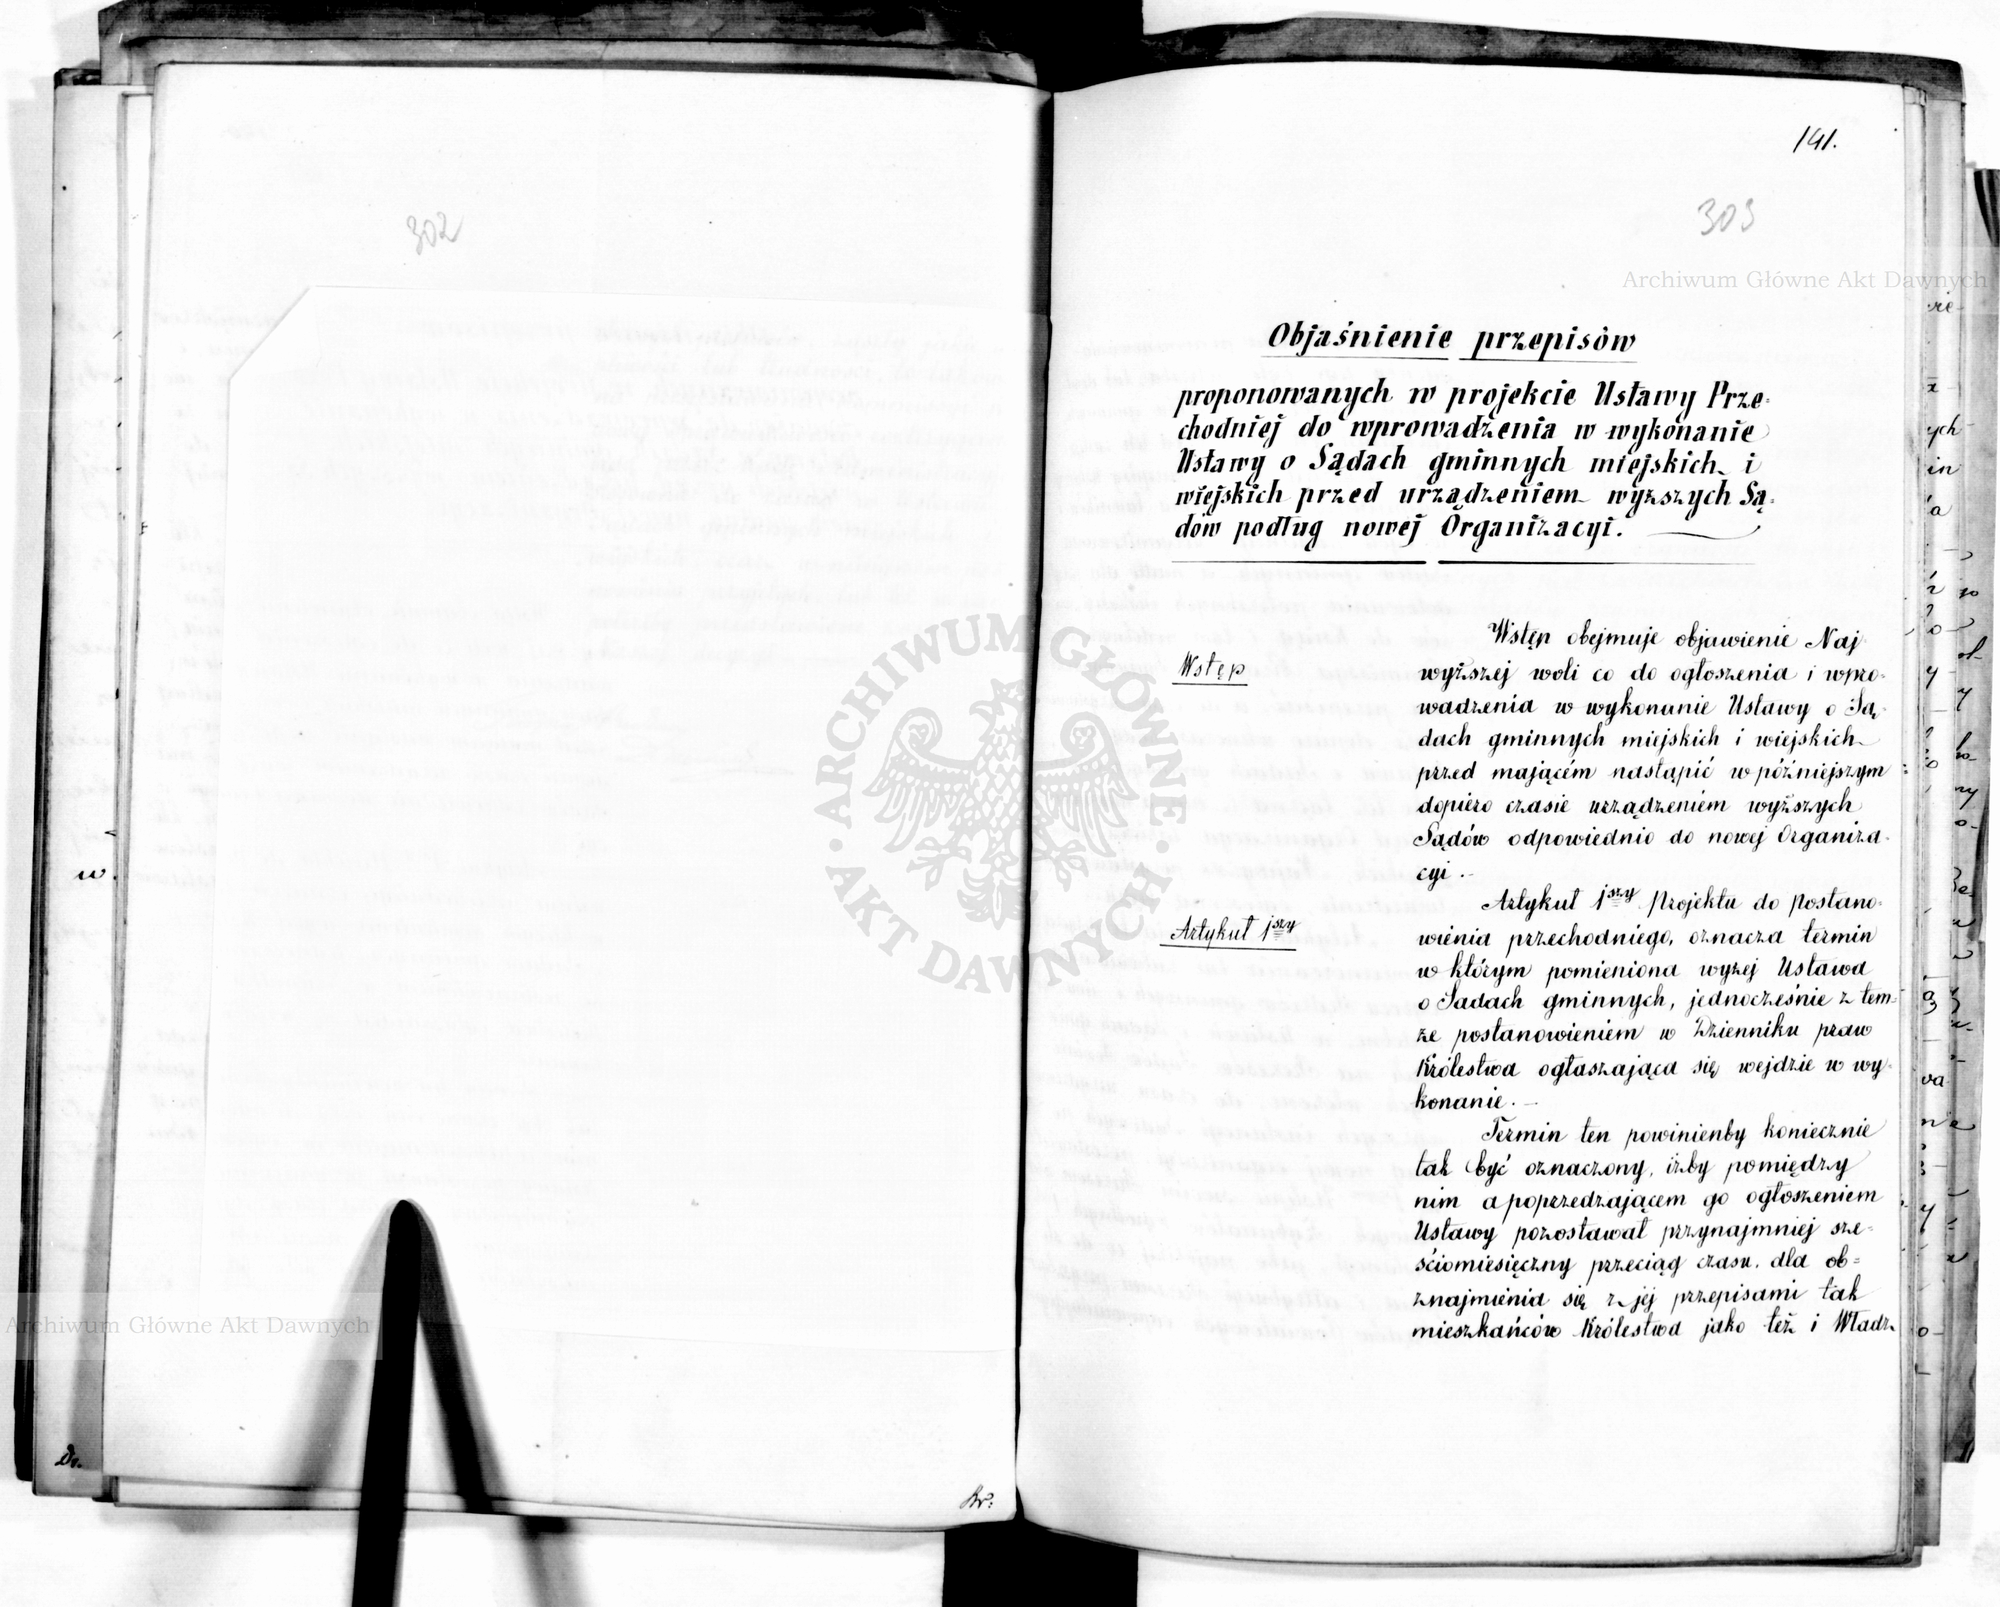 302
141.
303
Archiwum Główne Akt Dawnych
Objaśnienie przepisów
proponowanych w projekcie Ustawy Prze-
chodniej do wprowadzenia w wykonanie
Ustawy o Sądach gminnych miejskich i
wiejskich przed urządzeniem wyższych Są-
dów podług nowej Organizacyi.
Wstęp
Wstęp obejmuje objawienie Naj-
wyższej woli co do ogłoszenia i wpro-
wadzenia w wykonanie Ustawy o Są-
dach gminnych miejskich i wiejskich
przed mającém nastąpić w późniejszym
dopiero czasie urządzeniem wyższych
Sądów odpowiednio do nowej Organiza-
cyi.-
Artykuł 1szy
Artykuł 1szy Projektu do Postano-
wienia przechodniego, oznacza termin
w którym pomieniona wyżej Ustawa
o Sadach gminnych, jednocześnie z tem-
że postanowieniem w Dzienniku praw
Królestwa ogłaszająca się wejdzie w wy-
konanie.-
Termin ten powinienby koniecznie
tak być oznaczony, iżby pomiędzy
nim a poprzedzającem go ogłoszeniem
Ustawy pozostawał przynajmniej sze-
ściomiesięczny przeciąg czasu, dla ob-
znajmienia się z jej przepisami tak
mieszkańców Królestwa jako też i Władz
ARCHIWUM GŁÓWNE AKT DAWNYCH
Archiwum Główne Akt Dawnych